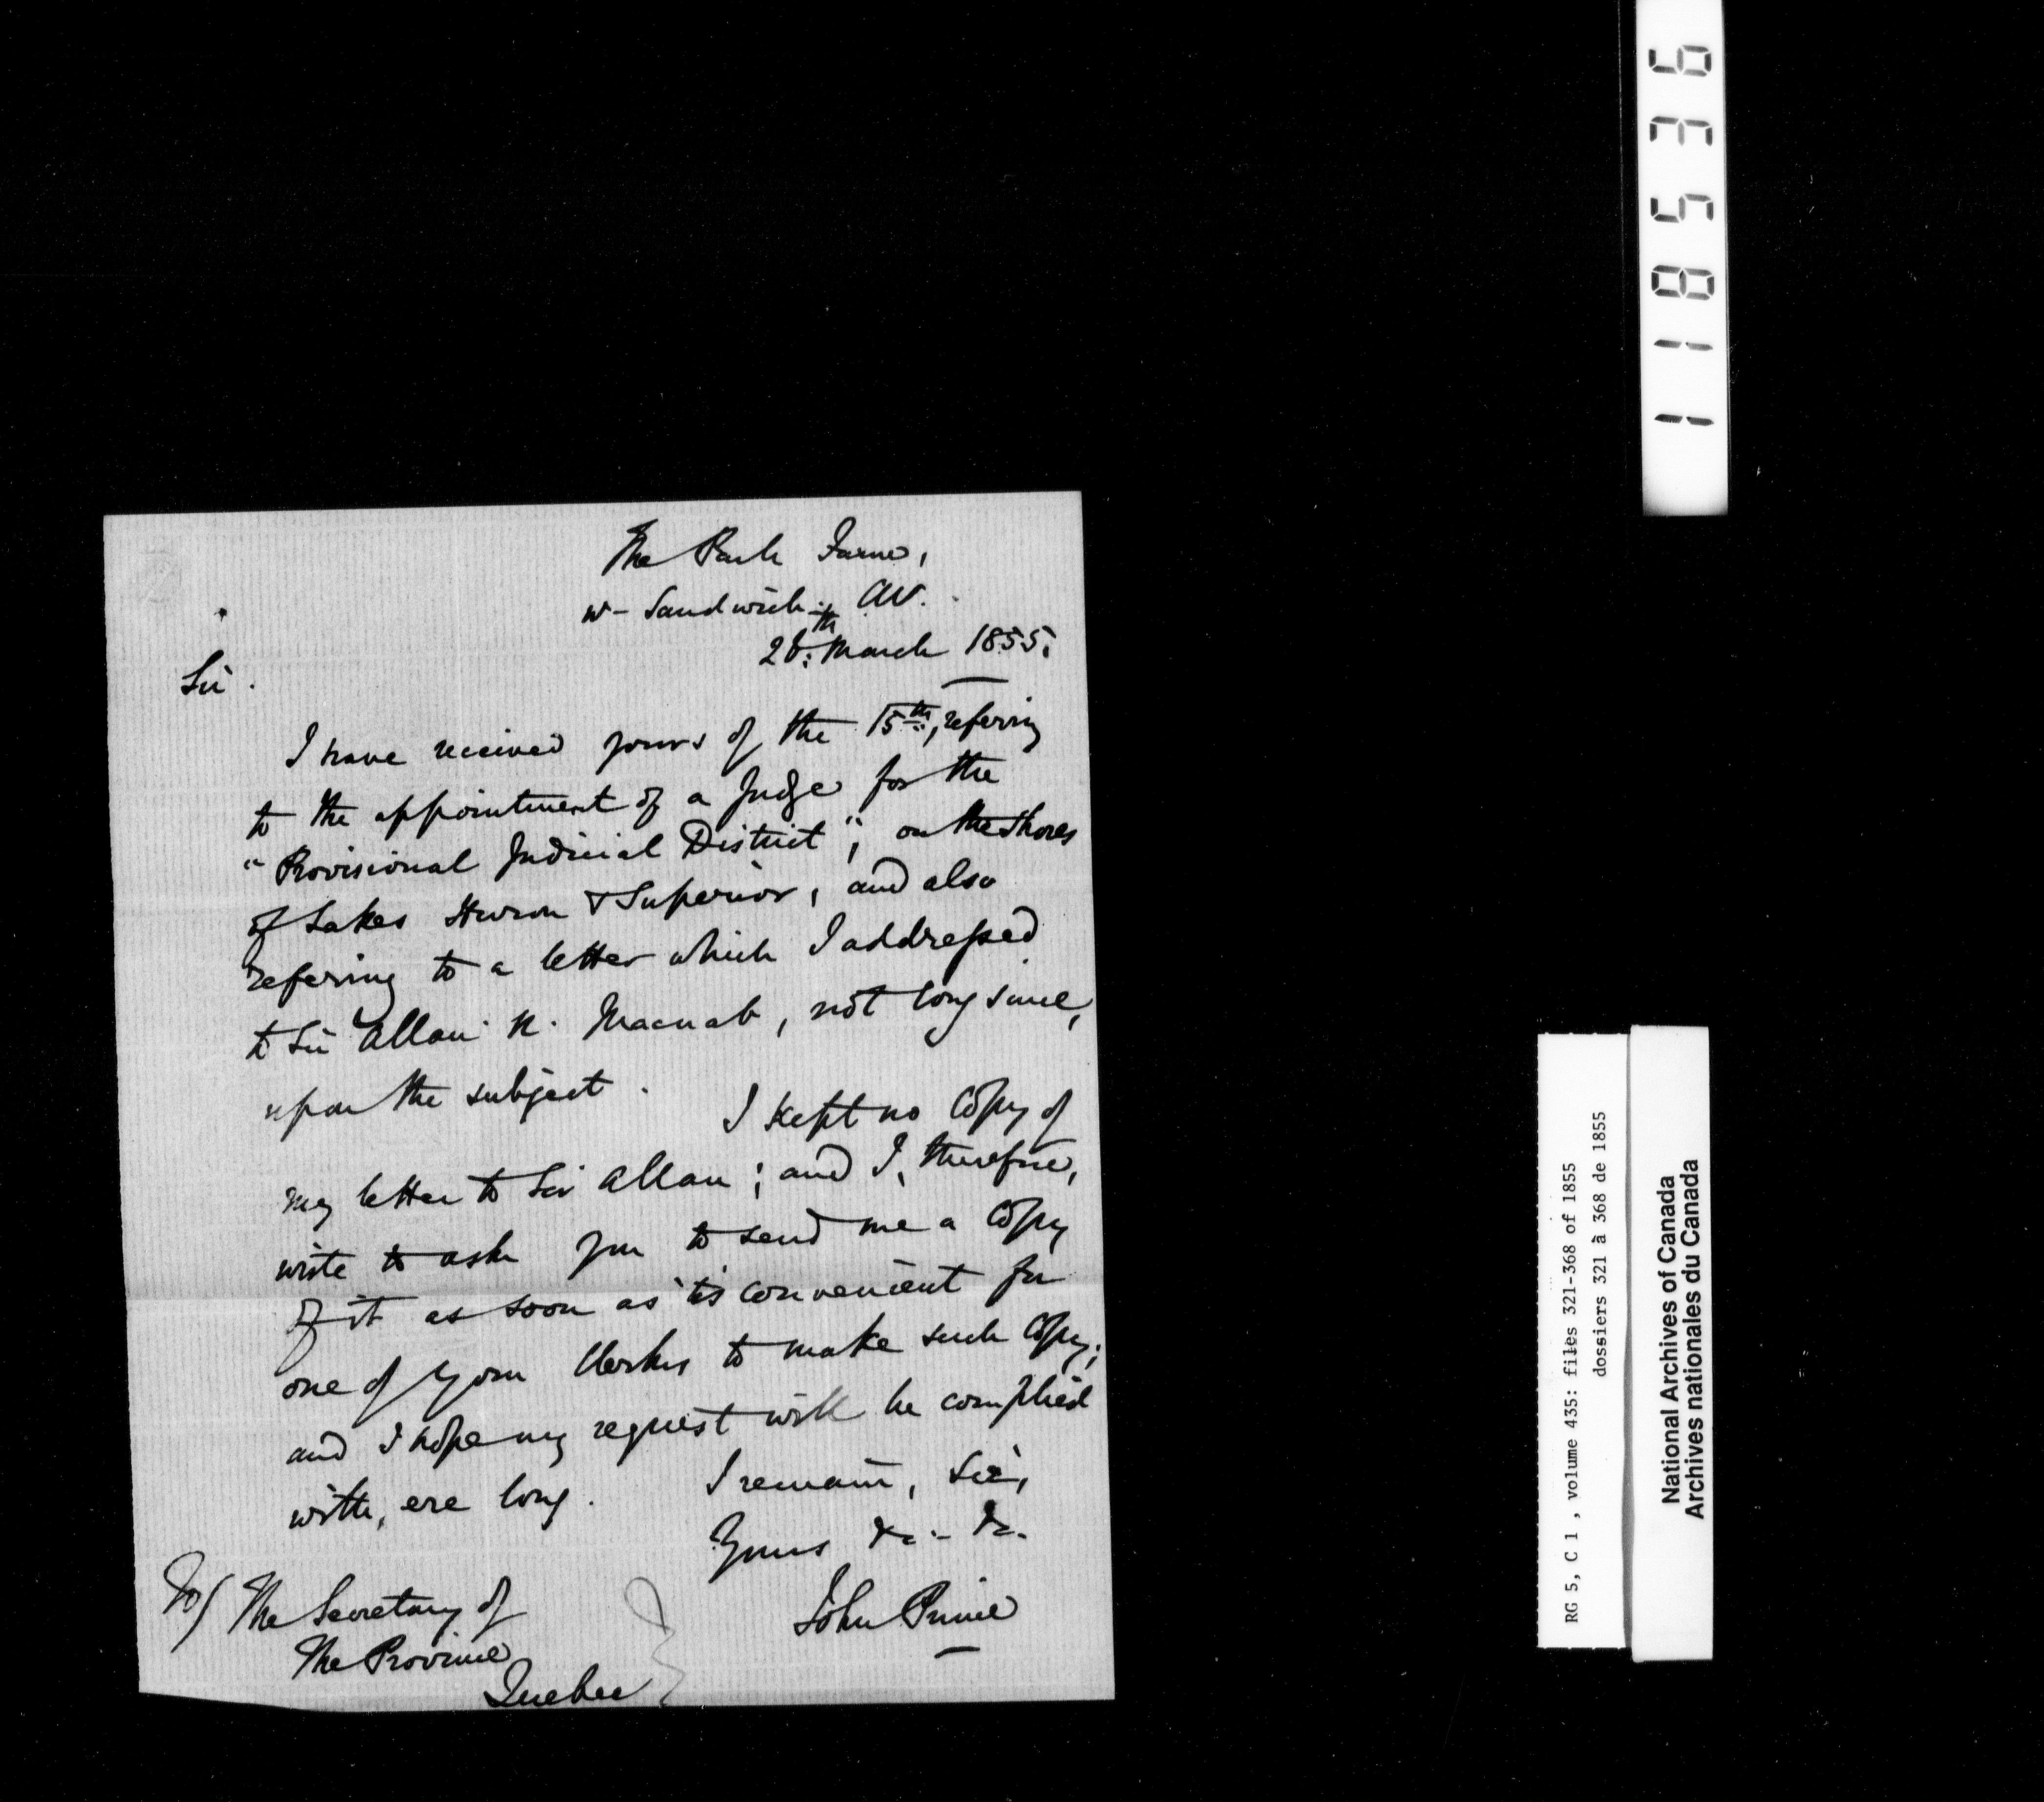 The Park Farm,
W- Sandwich. CW.
March 1855.
Sir.
I have received yours of the 15th, refering
to the appointment of a Judge for the
"Provisional Judicial District", on the Shores
of Lakes Huron & Superior, and also
refering to a letter which I addressed
to Sir Allan N. Macnab, not long since,
upon the subject. I kept no Copy of
my letter to Sir Allan; and I, therefore,
write to ask you to send me a Copy
of it as soon as 'tis convenient for
one of your Clerks to make such Copy;
and I hope my request will be complied
with, ere long. I remain, Sir,
Yours &c. - &c.
John Prince
To/ The Secretary of
The Province
Quebec
118536
RG 5, C 1 , volume 435: files 321-368 of 1855
dossiers 321 à 368 de 1855
National Archives of Canada
Archives nationales du Canada